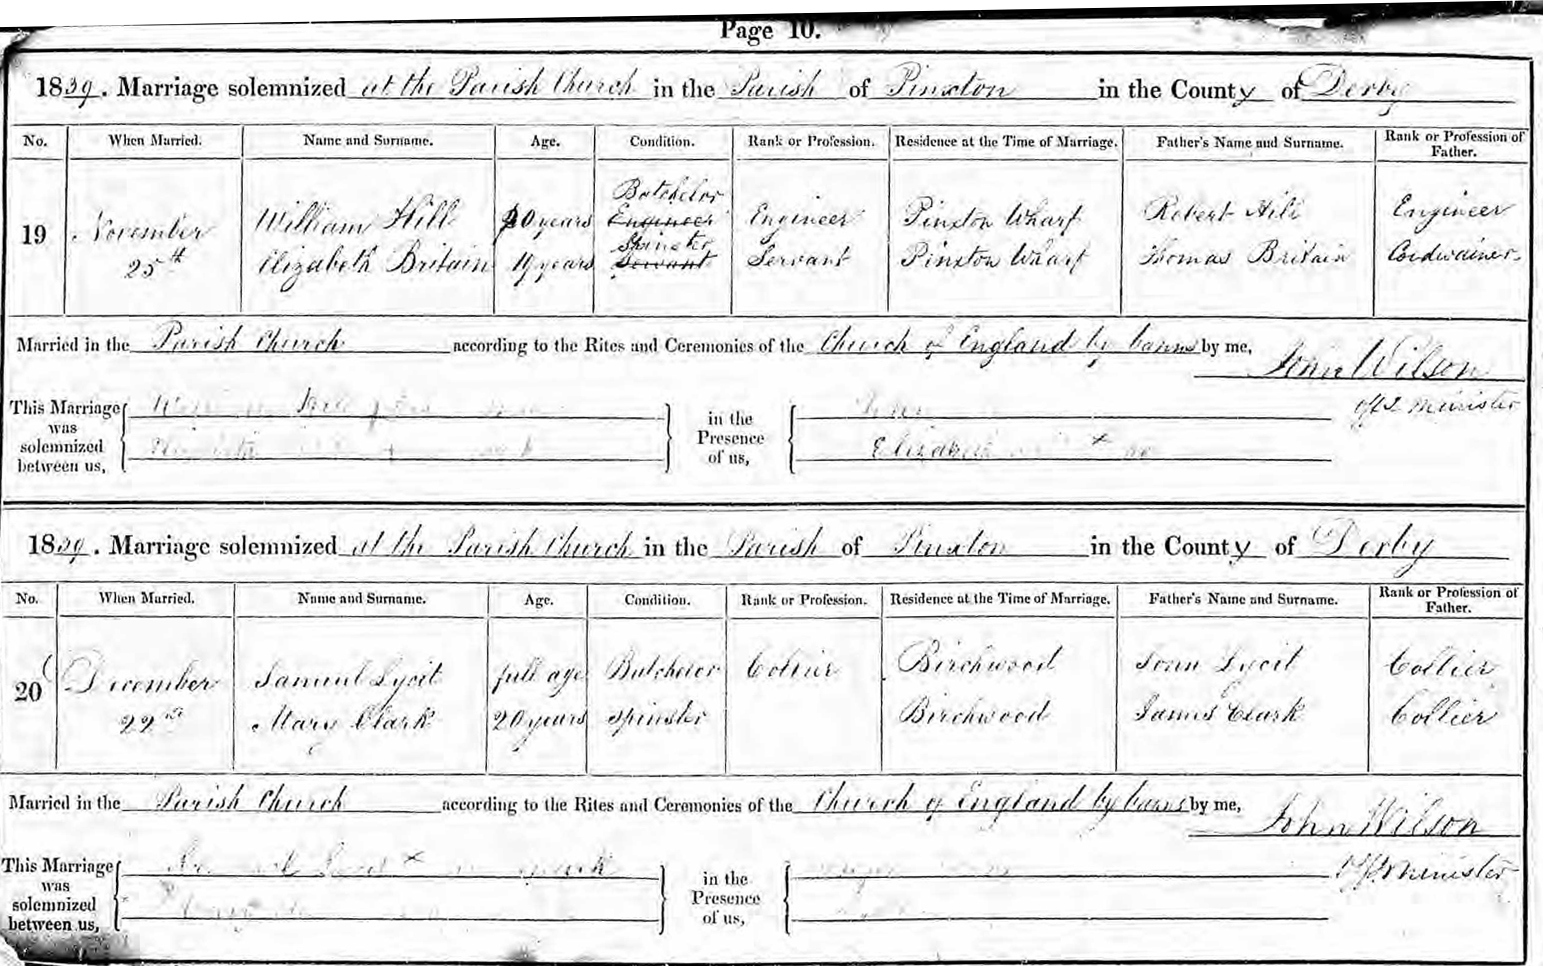 Page 10.
1839. Marriage solemnized at the Parish Church in the Parish of Pinxton in the County of Derby
No. When Married. Name and Surname. Age. Condition. Rank or Profession. Residence at the Time of Marriage. Father's Name and Surname. Rank or Profession of Father.
Batchelor
19 November William Hill 20 years Engineer Engineer Pinxton Wharf Robert Hill Engineer
Spinster
25th Elizabeth Britain 19 years Servant Servant Pinxton Wharf Thomas Britain Cordwainer
Married in the Parish Church according to the Rites and Ceremonies of the Church of England by banns by me, John Wilson
Minister
This Marriage was solemnized between us,
in the Presence of us,
Elizabeth x
1839. Marriage solemnized at the Parish Church in the Parish of Pinxton in the County of Derby
No. When Married. Name and Surname. Age. Condition. Rank or Profession. Residence at the Time of Marriage. Father's Name and Surname. Rank or Profession of Father.
20 December Samuel full age Batchelor Collier Birchwood Collier
22nd Mary Clark 20 years Spinster Birchwood James Clark Collier
Married in the Parish Church according to the Rites and Ceremonies of the Church of England by banns by me, John Wilson
Minister
This Marriage was solemnized between us,
x mark
in the Presence of us,